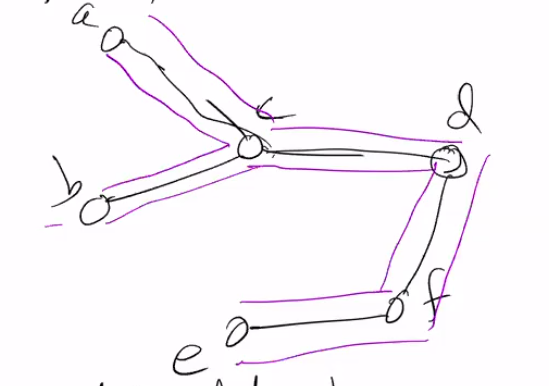 a
c
d
b
f
e